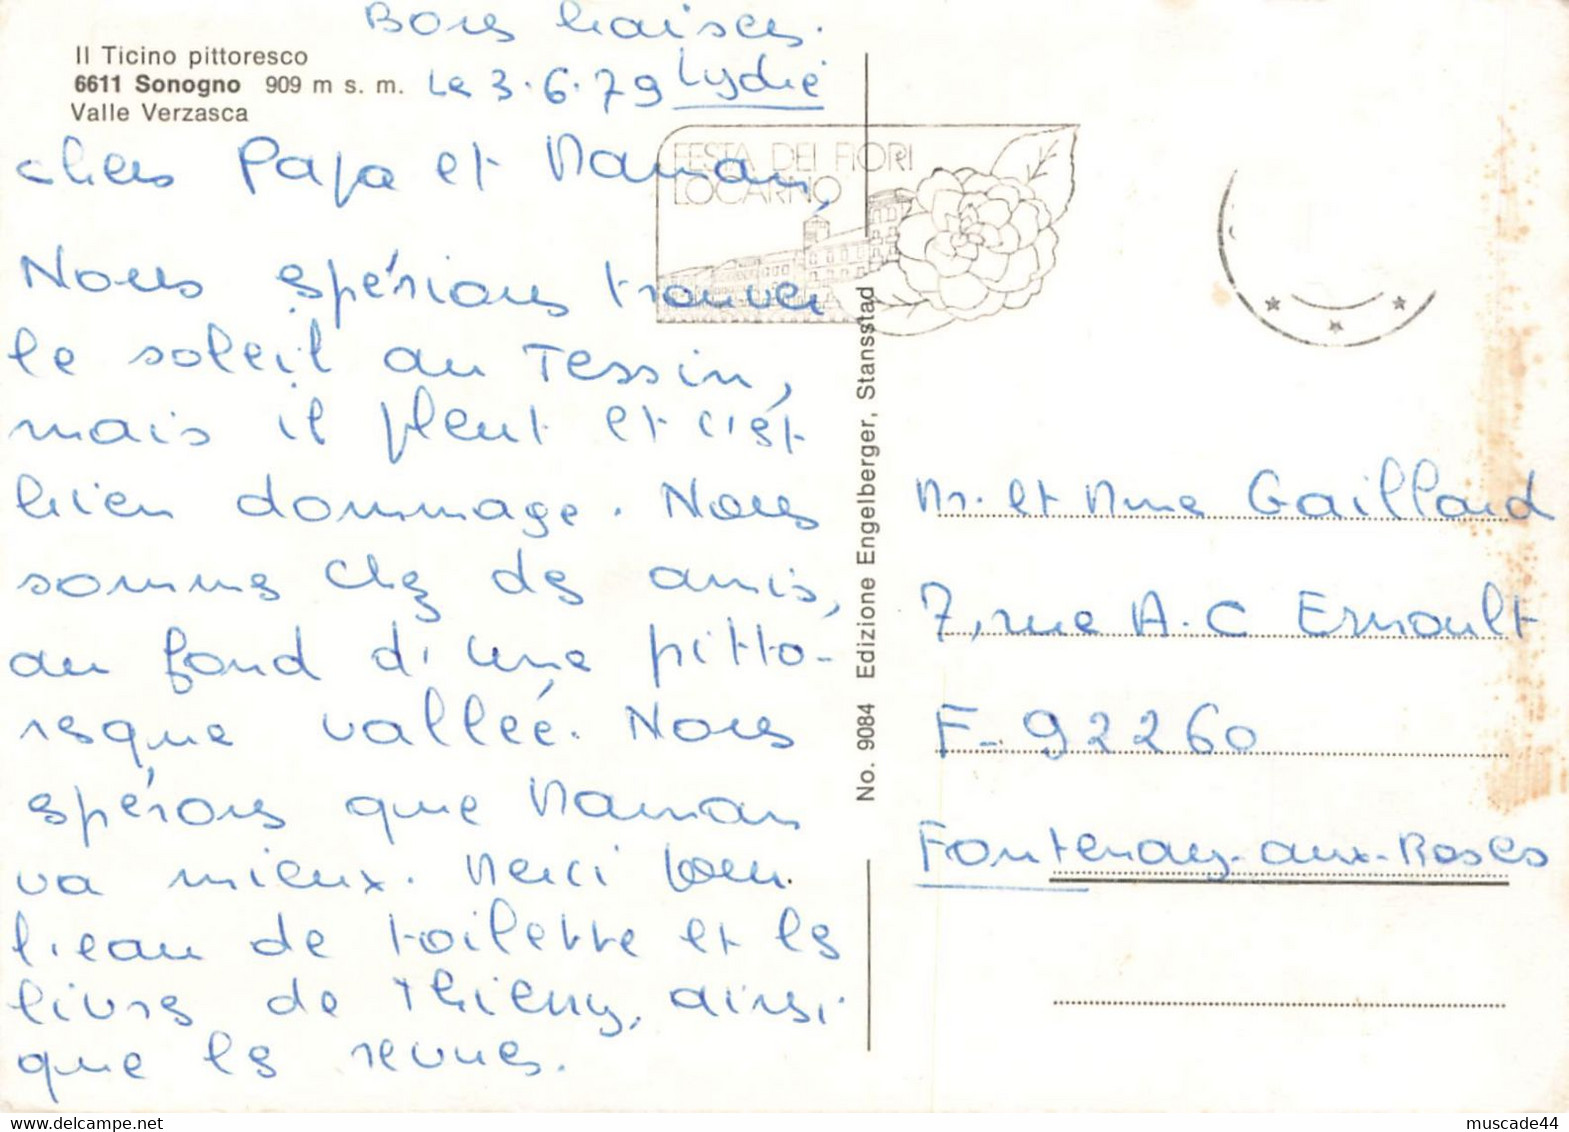 Bons baisers.
Lydie
Il Ticino pittoresco
6611 Sonogno 909 m s. m.
Valle Verzasca
Le 3.6.79
Chers Papa et Maman,
Nous espérions trouver
le soleil au Tessin,
mais il pleut et c'est
bien dommage. Nous
sommes chez des amis,
au fond d'une pitto-
resque vallée. Nous
espérons que Maman
va mieux. Merci pour
l'eau de toilette et les
livres de Thierry, ainsi
que les revues.
FESTA DEI FIORI
LOCARNO
No. 9084 Edizione Engelberger, Stansstad
M. et Mme Gaillard
7, rue A.C Ernoult
F-92260
Fontenay-aux-Roses
muscade44